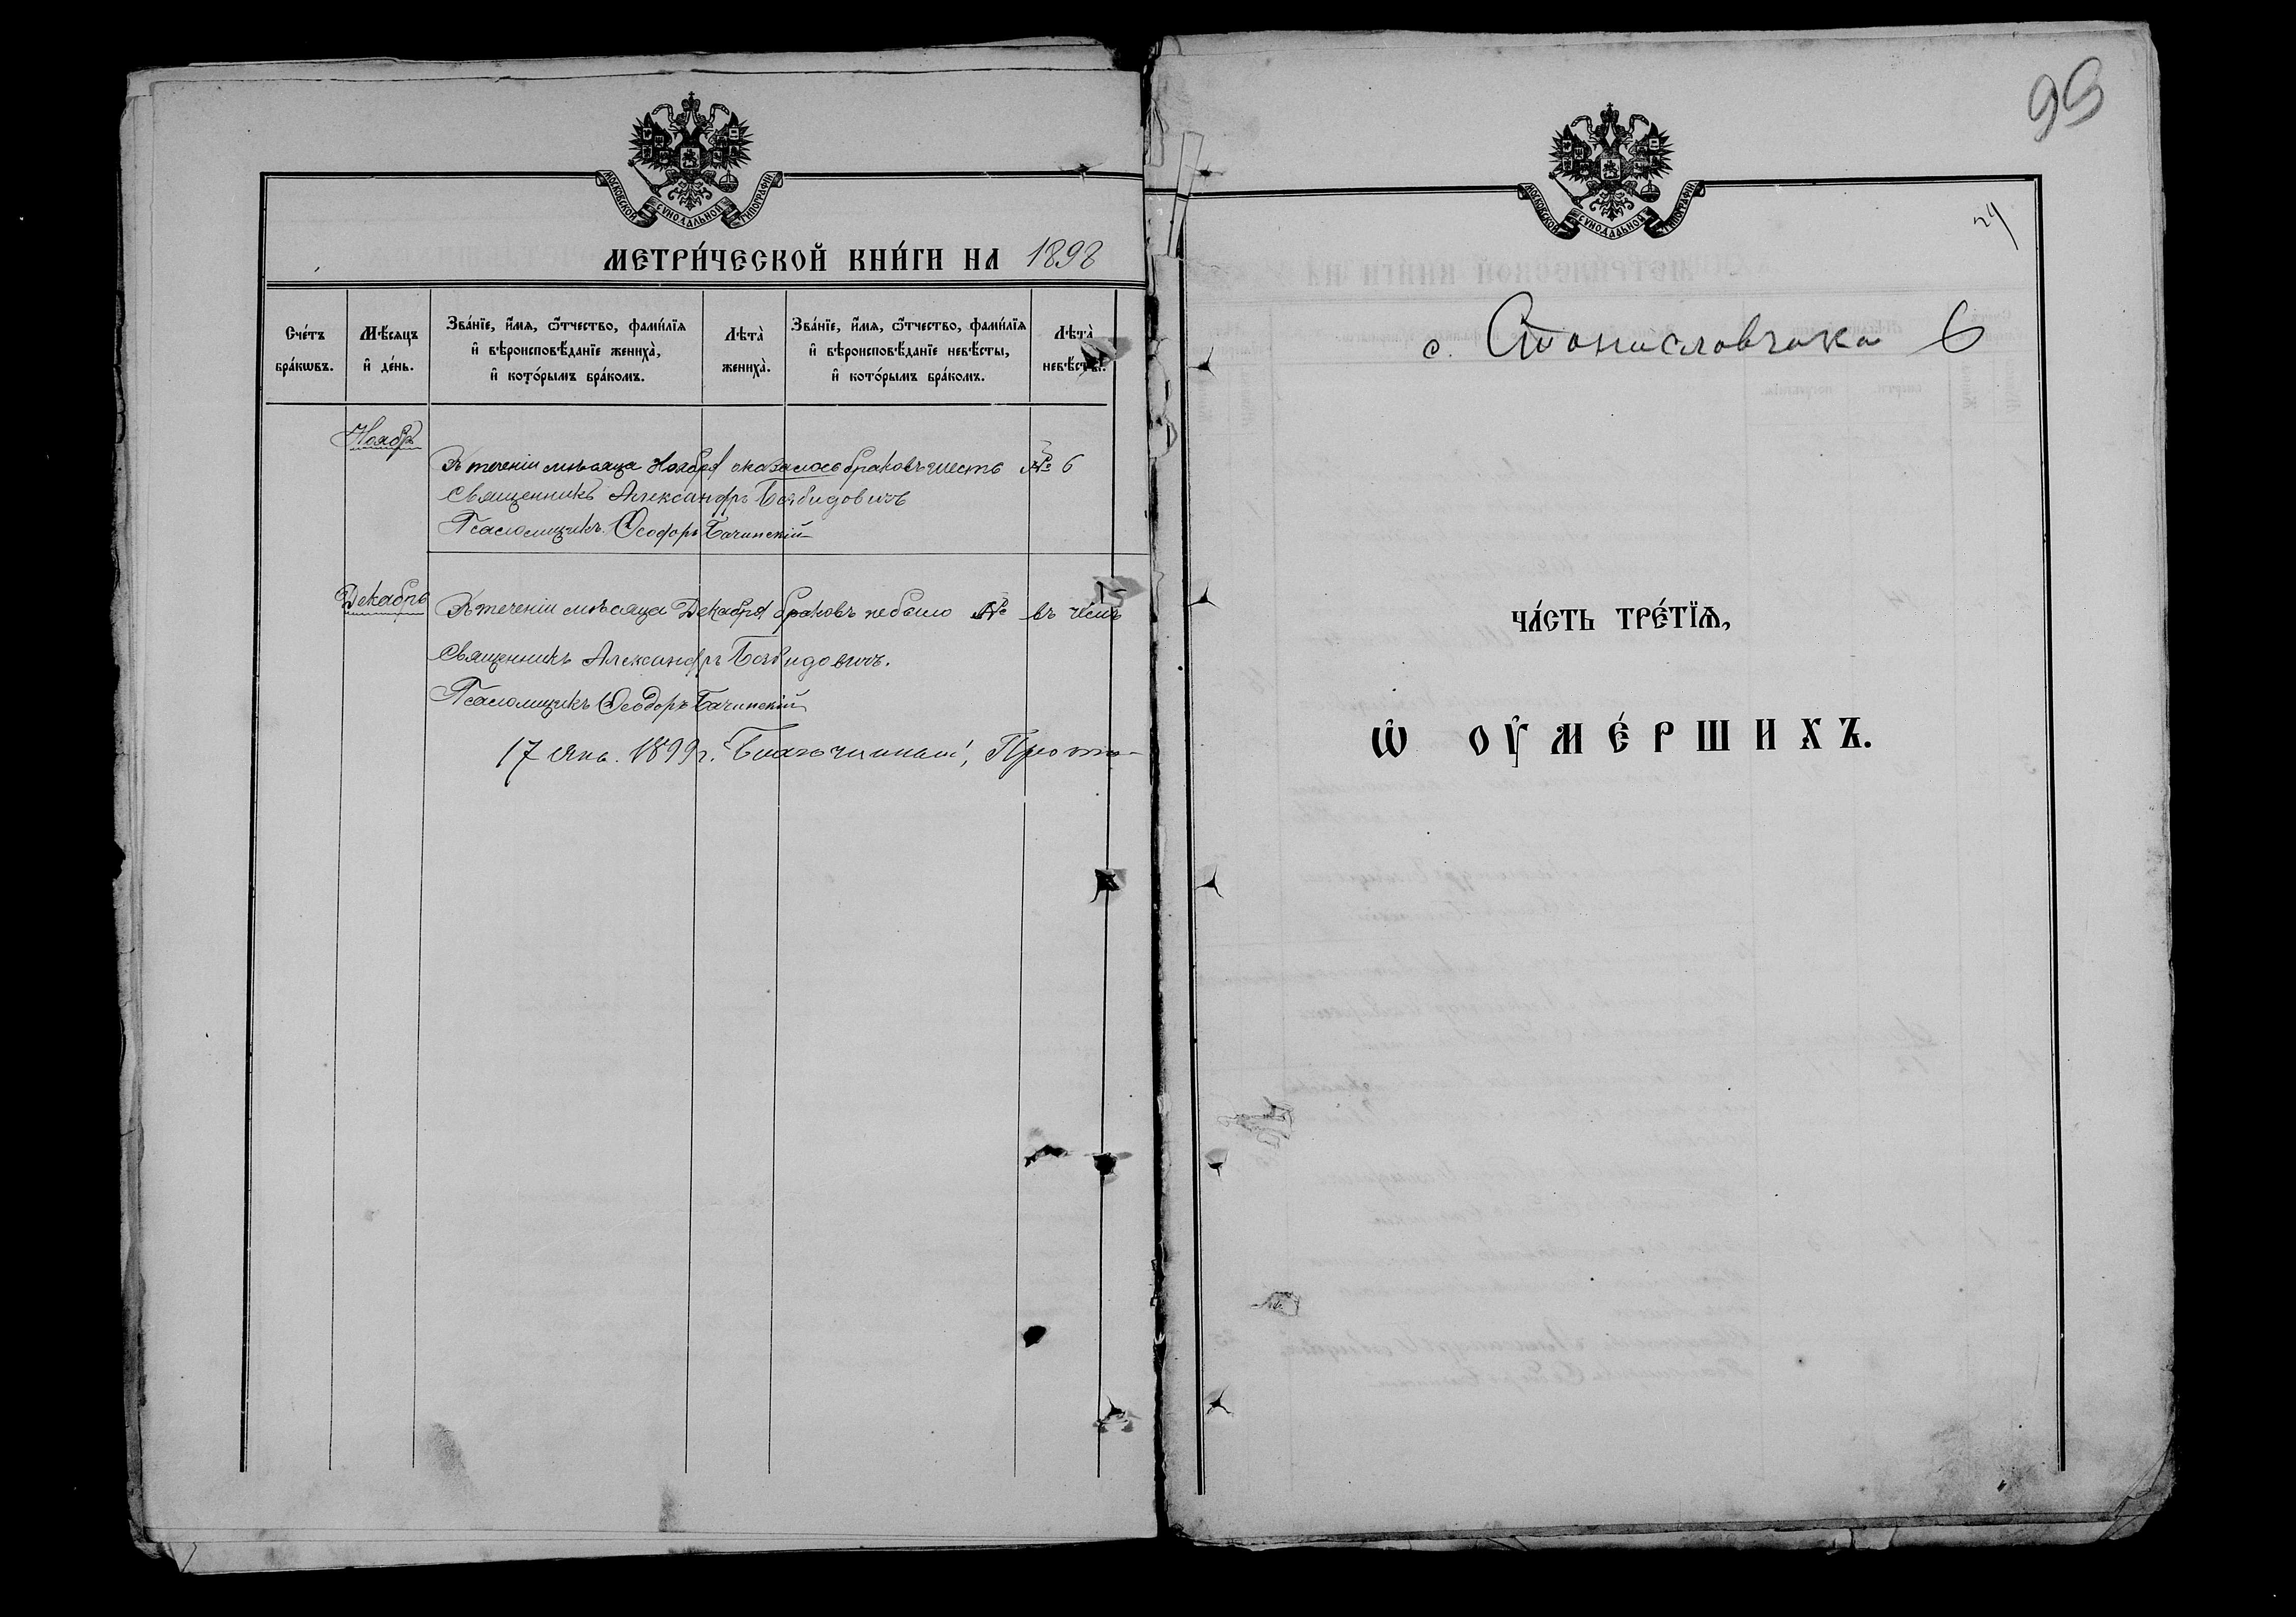 МОСКОВСКОЙ СУНОДАЛЬНОЙ ТИПОГРАФІИ
МЕТРИ́ЧЕСКОЙ КНИ́ГИ НА 1898
Сче́тъ бра́кѡвъ.
Мѣ́сяцъ и҆ де́нь.
Зва́нїе, и҆́мя, ѻ҆́тчество, фами́лїя
и҆ вѣроисповѣ́данїе жениха̀,
и҆ кото́рымъ бра́комъ.
Лѣта̀ жениха̀.
Зва́нїе, и҆́мя, ѻ҆́тчество, фами́лїя
и҆ вѣроисповѣ́данїе невѣ́сты,
и҆ кото́рымъ бра́комъ.
Лѣта̀ невѣ́сты.
Ноябрь
Въ теченіи мѣсяца Ноября оказалось браковъ шесть № 6
Священникъ Александръ
Псаломщикъ Ѳеодоръ Бачинскій
Декабрь
Въ теченіи мѣсяца Декабря браковъ небыло № въ чемъ
Священникъ Александръ
Псаломщикъ Ѳеодоръ Бачинскій
17 Янв. 1899 г. Благочинный, Прото-
99
МОСКОВСКОЙ СУНОДАЛЬНОЙ ТИПОГРАФІИ
с. Станиславчика 6
ЧА́СТЬ ТРЕ́ТЇѦ,
Ѡ҆ ОУ҆МЕ́РШИХЪ.